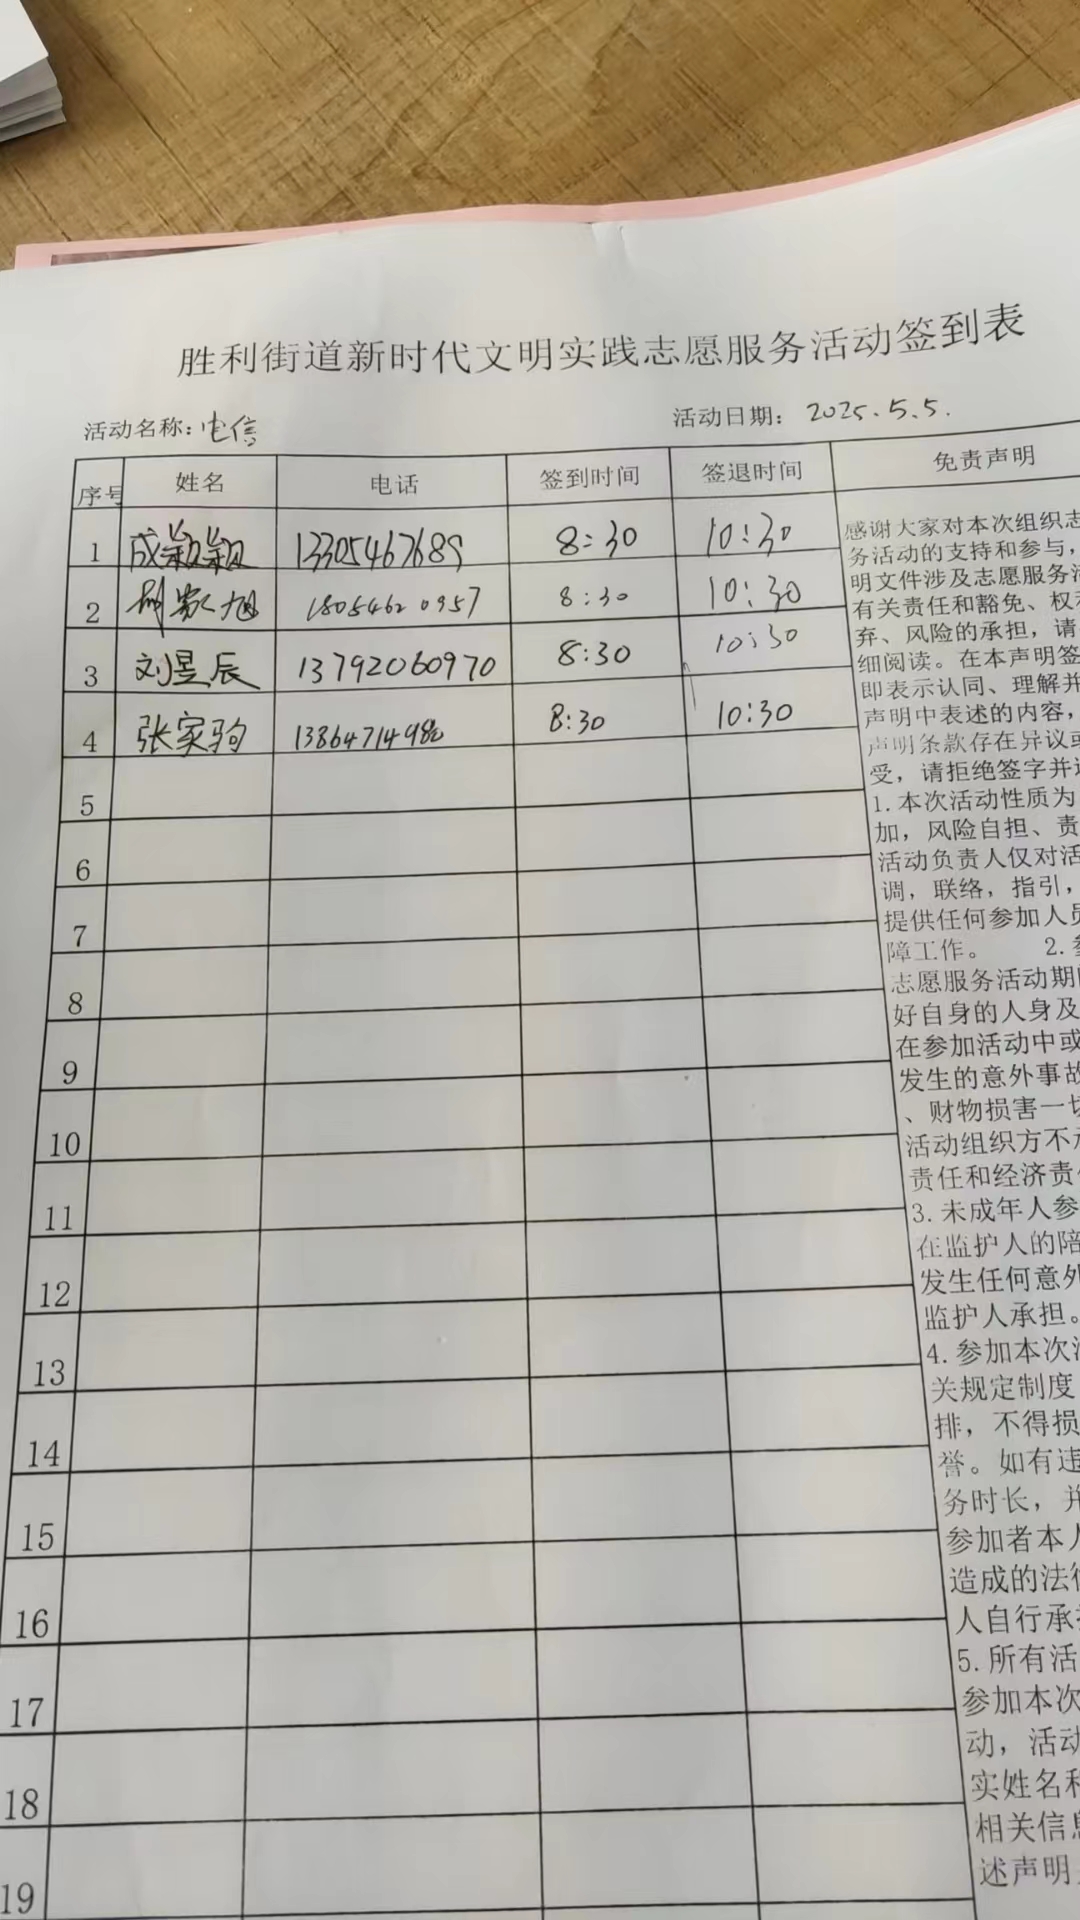 胜利街道新时代文明实践志愿服务活动签到表
活动名称：电信 活动日期： 2025.5.5.
序号 姓名 电话 签到时间 签退时间 免责声明
1 成颖颖 13305467689 8:30 10:30
2 家旭 18054620957 8:30 10:30
3 刘昱辰 13792060970 8:30 10:30
4 张实驹 138647149 8:30 10:30
5
6
7
8
9
10
11
12
13
14
15
16
17
18
19
感谢大家对本次组织志
务活动的支持和参与，
明文件涉及志愿服务活
有关责任和豁免、权利
弃、风险的承担，请
细阅读。在本声明签
即表示认同、理解并
声明中表述的内容，
声明条款存在异议或
受，请拒绝签字并
1.本次活动性质为
加，风险自担、责
活动负责人仅对活
调，联络，指引，
提供任何参加人员
障工作。 2.参
志愿服务活动期间
好自身的人身及
在参加活动中或
发生的意外事故
、财物损害一切
活动组织方不承
责任和经济责任
3.未成年人参
在监护人的陪
发生任何意外
监护人承担。
4.参加本次活
关规定制度
排，不得损
誉。如有违
务时长，并
参加者本人
造成的法律
人自行承担
5.所有活
参加本次
动，活动
实姓名和
相关信息
述声明